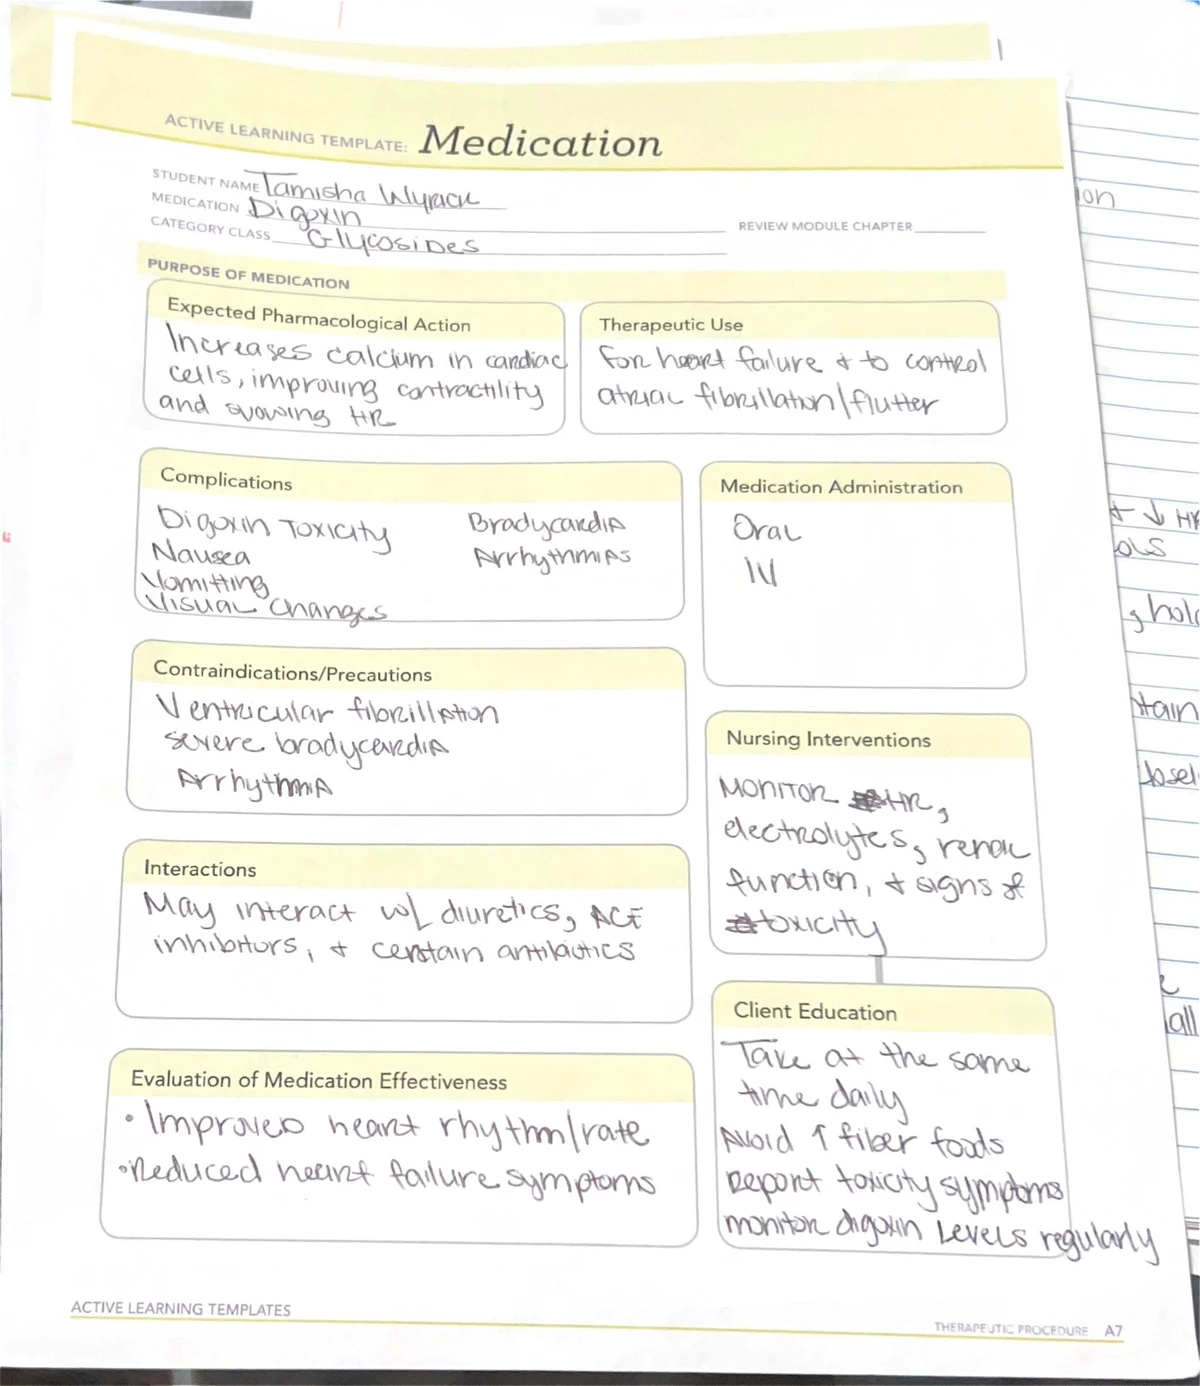 ACTIVE LEARNING TEMPLATE: Medication
STUDENT NAME Tamisha Wyrick
MEDICATION Digoxin
REVIEW MODULE CHAPTER
CATEGORY CLASS Glycosides
PURPOSE OF MEDICATION
Expected Pharmacological Action
Increases calcium in cardiac
cells, improving contractility
and slowing HR
Therapeutic Use
for heart failure & to control
atrial fibrillation/flutter
Complications
Digoxin Toxicity
Nausea
Vomitting
Visual changes
Bradycardia
Arrhythmias
Medication Administration
Oral
IV
Contraindications/Precautions
Ventricular fibrillation
severe bradycardia
Arrhythmia
Nursing Interventions
Monitor HR,
electrolytes, renal
function, & signs of
toxicity
Interactions
May interact w/ diuretics, ACE
inhibitors, & certain antibiotics
Client Education
Take at the same
time daily
Avoid ↑ fiber foods
Report toxicity symptoms
monitor digoxin levels regularly
Evaluation of Medication Effectiveness
• Improved heart rhythm/rate
• Reduced heart failure symptoms
ACTIVE LEARNING TEMPLATES
THERAPEUTIC PROCEDURE A7
ion
↓ HR
ols
hold
tain
losel
all